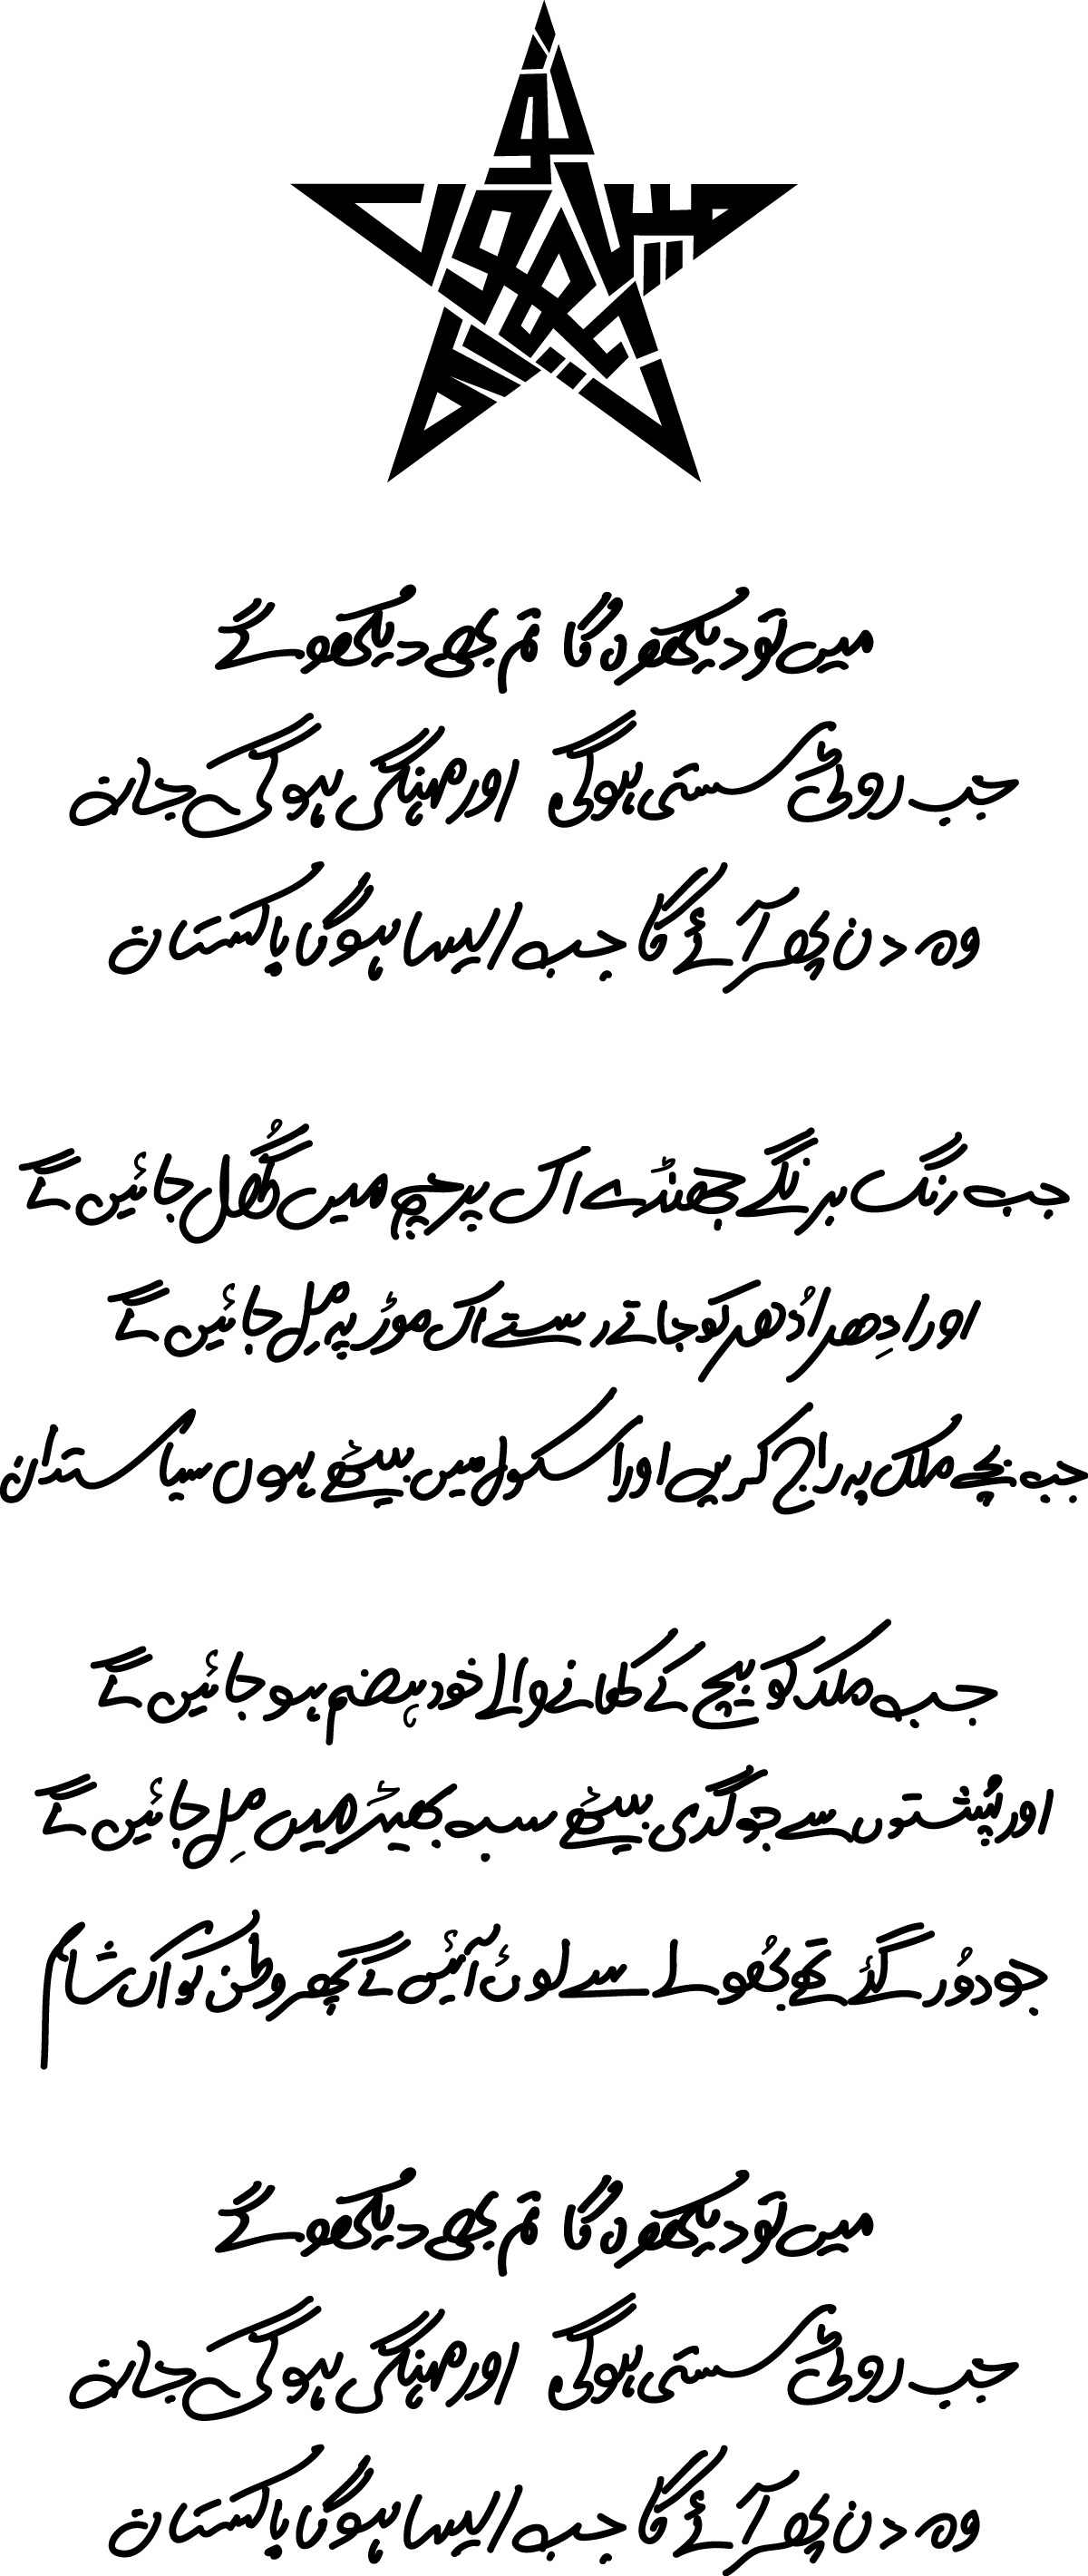 میں تو دیکھوں گا تم بھی دیکھو گے
جب روٹی سستی ہوگی اور مہنگی ہوگی جان
وہ دن پھر آئے گا جب ایسا ہوگا پاکستان
جب رنگ برنگے جھنڈے اک پرچم میں گُھل جائیں گے
اور ادِھر اُدھر کو جاتے رستے اک موڑ پہ مل جائیں گے
جب بچے ملک پہ راج کریں اور اسکول میں بیٹھے ہوں سیاستدان
جب ملک کو بیچ کے کھانے والے خود ہضم ہو جائیں گے
اور پُشتوں سے جو گدی بیٹھے سب بھیڑ میں مِل جائیں گے
جو دُور گئے تھے بُھولے سے لوٹ آئیں گے پھر وطن کو اک شام
میں تو دیکھوں گا تم بھی دیکھو گے
جب روٹی سستی ہوگی اور مہنگی ہوگی جان
وہ دن پھر آئے گا جب ایسا ہوگا پاکستان